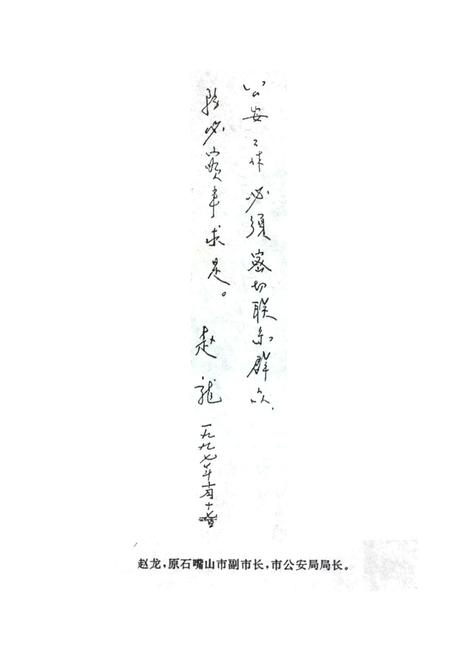 公安工作必须密切联系群众,
必實事求是。
赵龍
一九九七年十月十
赵龙,原石嘴山市副市长,市公安局局长。